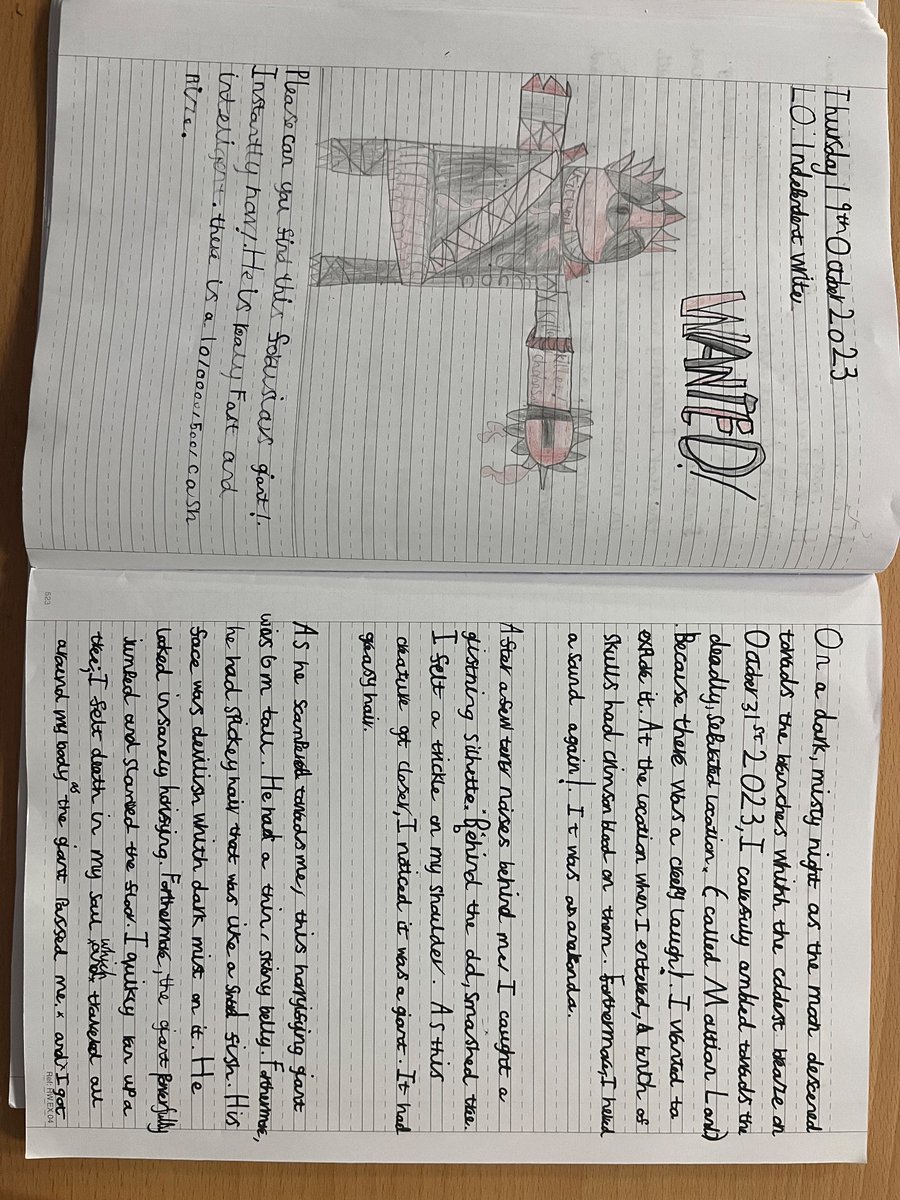 Thursday 19th October 2023
LO: Independent write
WANTED!
Killer
killer
chaos
Please can you find this giant!.
Instantly horj. He is really Fast and
intelligent. there is a cash
Prize.
On a dark, misty night as the moon descened
towards the branches whith the coldest breaze on
October 31st 2023, I carefuly ambled towards the
deadly, location. (called Martian Land)
. Because there was a creepy laugh!. I wanted to
explore it. At the location when I entered, A bunch of
skulls had crimson blood on them. Forthermore, I heard
a sound again!. It was an anakonda.
After a few tence noises behind me, I caught a
glistning silhette. Behind the old, smashed tree.
I felt a tickle on my shoulder. As this
creature got closer, I noticed it was a giant. It had
greasy hair.
As he towards me, this horryfying giant
was 6m tall. He had a thin, skiny belly. Forthermore,
he had spickey hair that was like a fish. His
face was devilish whith dark mist on it. He
looked insanely horrifying. Forthermore, the giant powerfully
jumped and slamed the floor. I quikly ran up a
tree; I felt death in my soul which traveled all
around my body as the giant Passed me. and I got
523
Ref: RW.EX.04